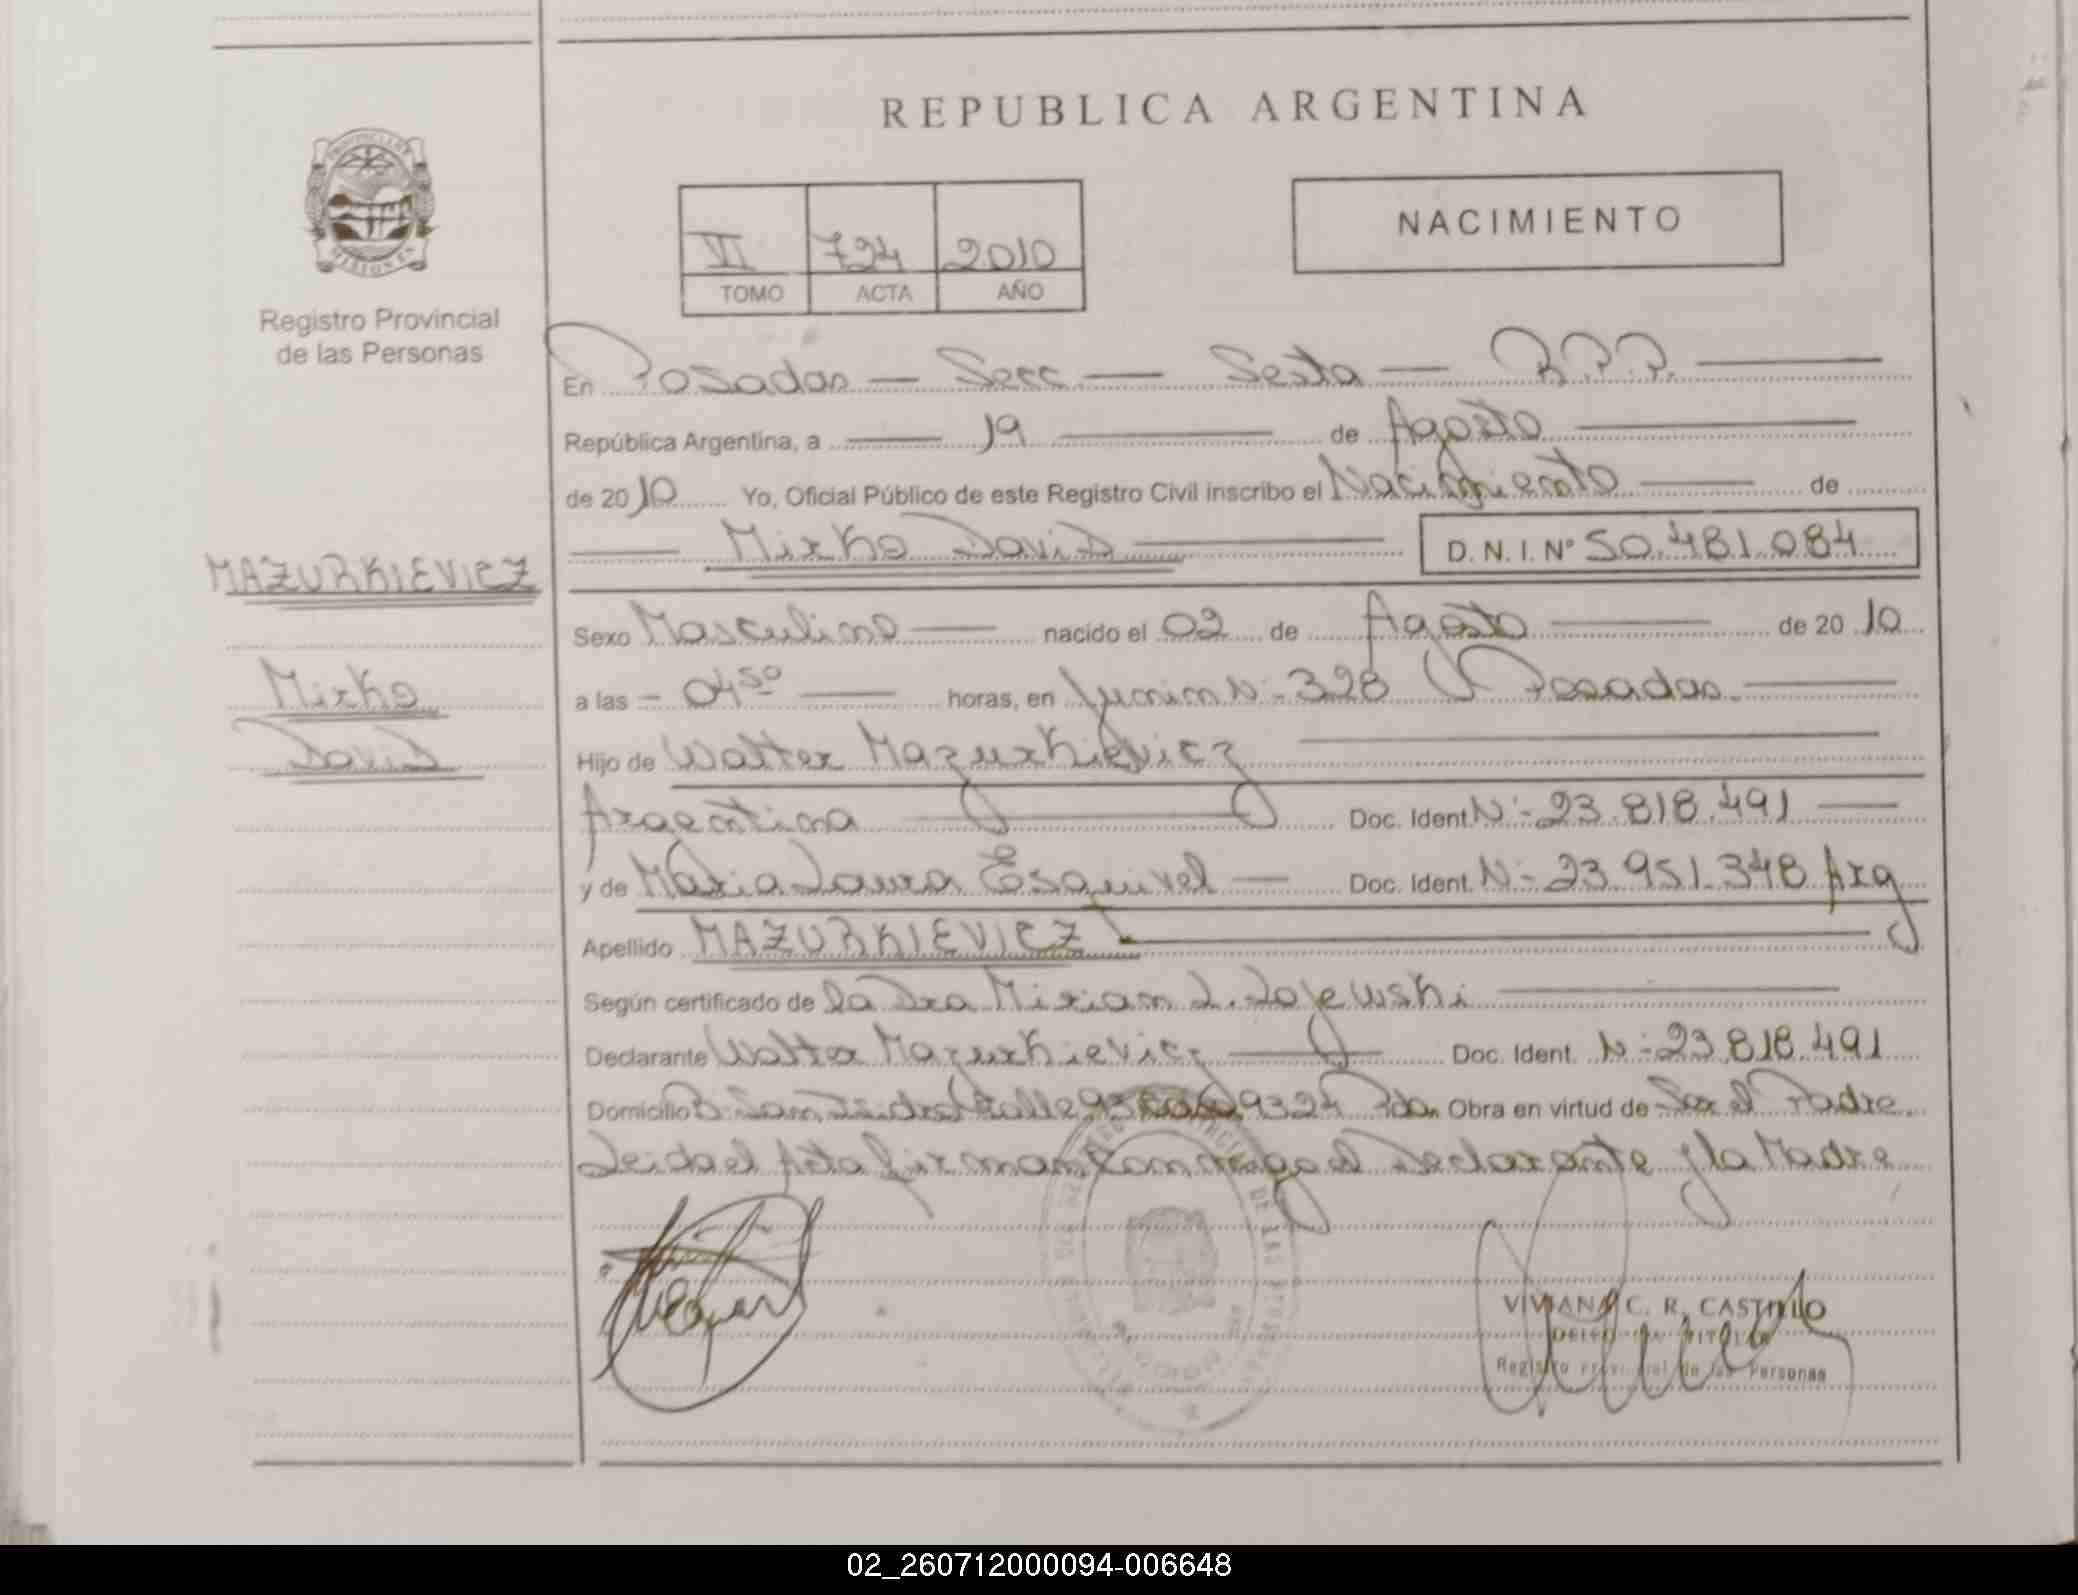 REPUBLICA ARGENTINA
NACIMIENTO
VI 724 2010
TOMO ACTA AÑO
PROVINCIA DE MISIONES
Registro Provincial
de las Personas
En Posadas — Secc — Sexta — R.P.P.
República Argentina, a 19 de Agosto
de 2010 Yo, Oficial Público de este Registro Civil inscribo el Nacimiento de
Mirko David D. N. I. Nº 50.481.084
MAZURKIEVICZ
Mirko
David
Sexo Masculino nacido el 02 de Agosto de 2010
a las 04 50 horas, en Junin Nº 328 Posadas
Hijo de Walter Mazurkievicz
Argentina Doc. Ident. Nº 23.818.491
y de Maria Laura Esquivel Doc. Ident. Nº 23.951.348 Arg
Apellido MAZURKIEVICZ
Según certificado de la Dra Miriam L. Zajewski
Declarante Walter Mazurkievicz Doc. Ident. Nº 23.818.491
Domicilio Bº San Isidro Calle 93 9324 Pdas. Obra en virtud de Ser el Padre
Leida el Acta firman conmigo el Declarante y la Madre
VIVIANA C. R. CASTILLO
DELEGADA TITULAR
Registro Provincial de las Personas
02_260712000094-006648